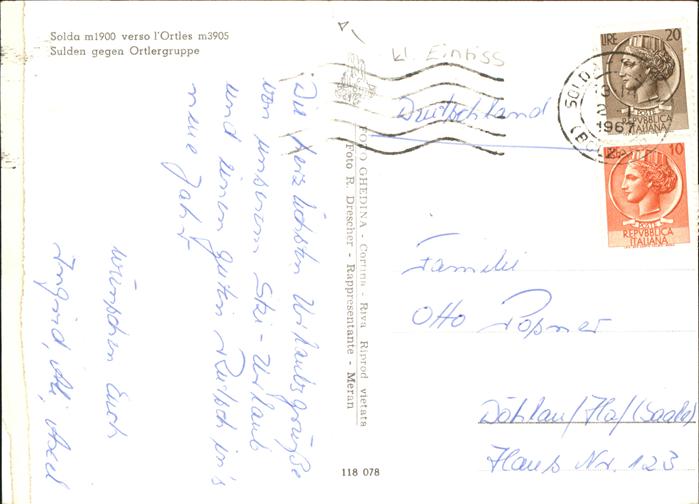 Solda m1900 verso l'Ortles m3905
Sulden gegen Ortlergruppe
kl. Einriss
Die herzlichsten Urlaubsgrüße
von unserem Ski-Urlaub
und einen guten Rutsch in's
neue Jahr
wünschen Euch
Ingrid, Axel
FOTO GHEDINA - Cortina - Riva Riprod. vietata
Foto R. Drescher - Rappresentante - Meran
118 078
Deutschland
LIRE 20
REPVBBLICA
ITALIANA
10
POSTE
REPVBBLICA
ITALIANA
SOLDA
1967
Familie
Otto Poßner
Döhlau/Hof/(Saale)
Haus Nr. 123